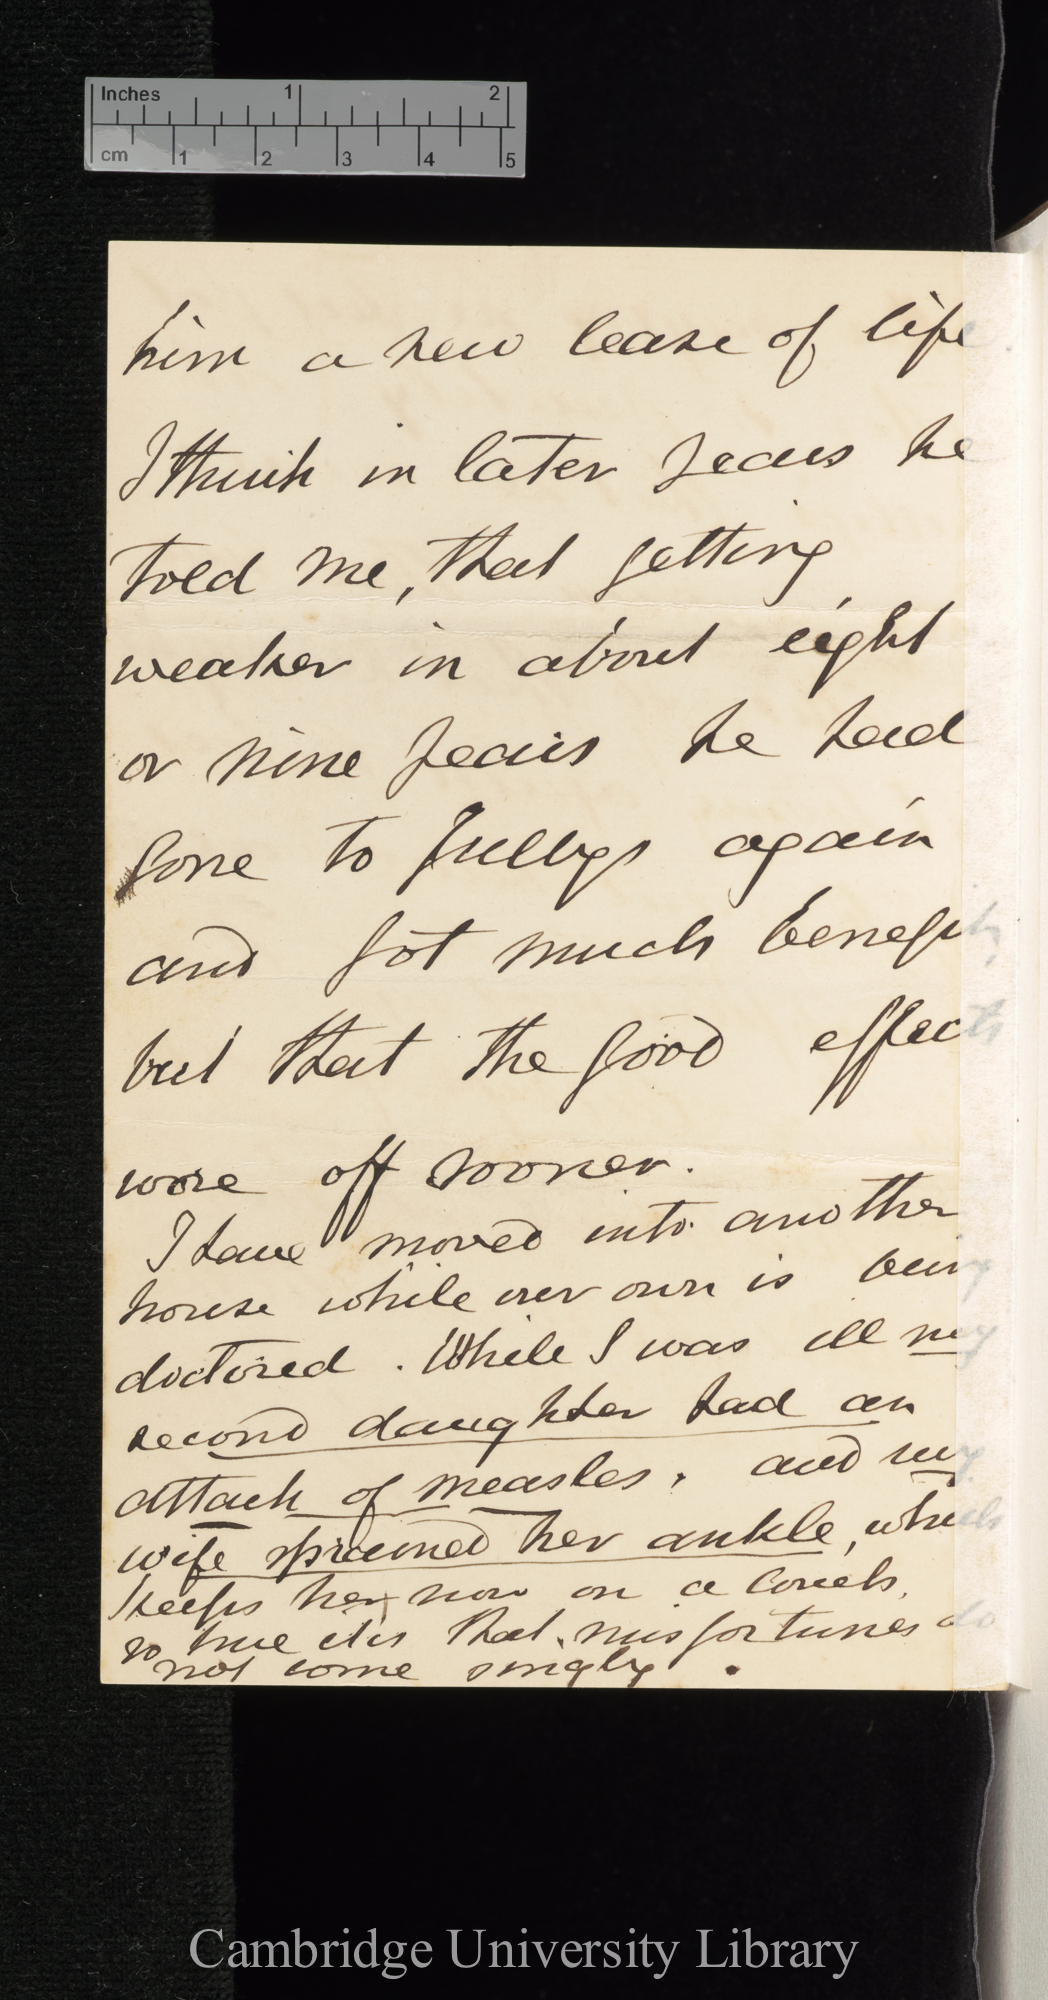 Inches 1 2
cm 1 2 3 4 5
him a new lease of life
I think in later years he
told me, that getting
weaker in about eight
or nine years he had
gone to Gullys again
and got much benefit,
but that the good effects
wore off sooner.
I have moved into another
house while our own is being
doctored. While I was ill my
second daughter had an
attack of measles. and my
wife sprained her ankle, which
keeps her now on a couch.
so true it is that misfortunes do
not come singly.
Cambridge University Library